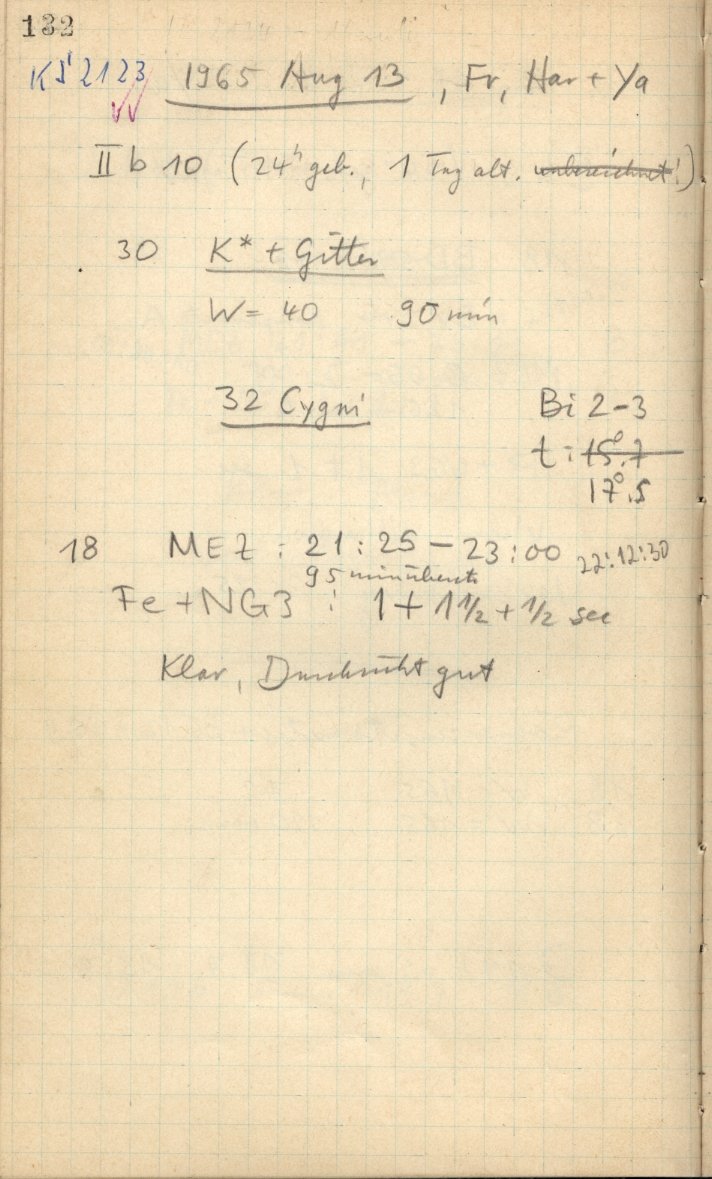 132
KS 2123 1965 Aug 13, Fr, Har + Ya
II b 10 (24h geb., 1 Tag alt. unbezeichnet!)
30 K* + Gitter
W = 40 90 min
32 Cygni Bi 2-3
t: 15°.7
17°.5
18 MEZ : 21:25 - 23:00 22:12:30
95 min
Fe + NG3 : 1 + 1 1/2 + 1/2 sec
Klar, Durchsicht gut